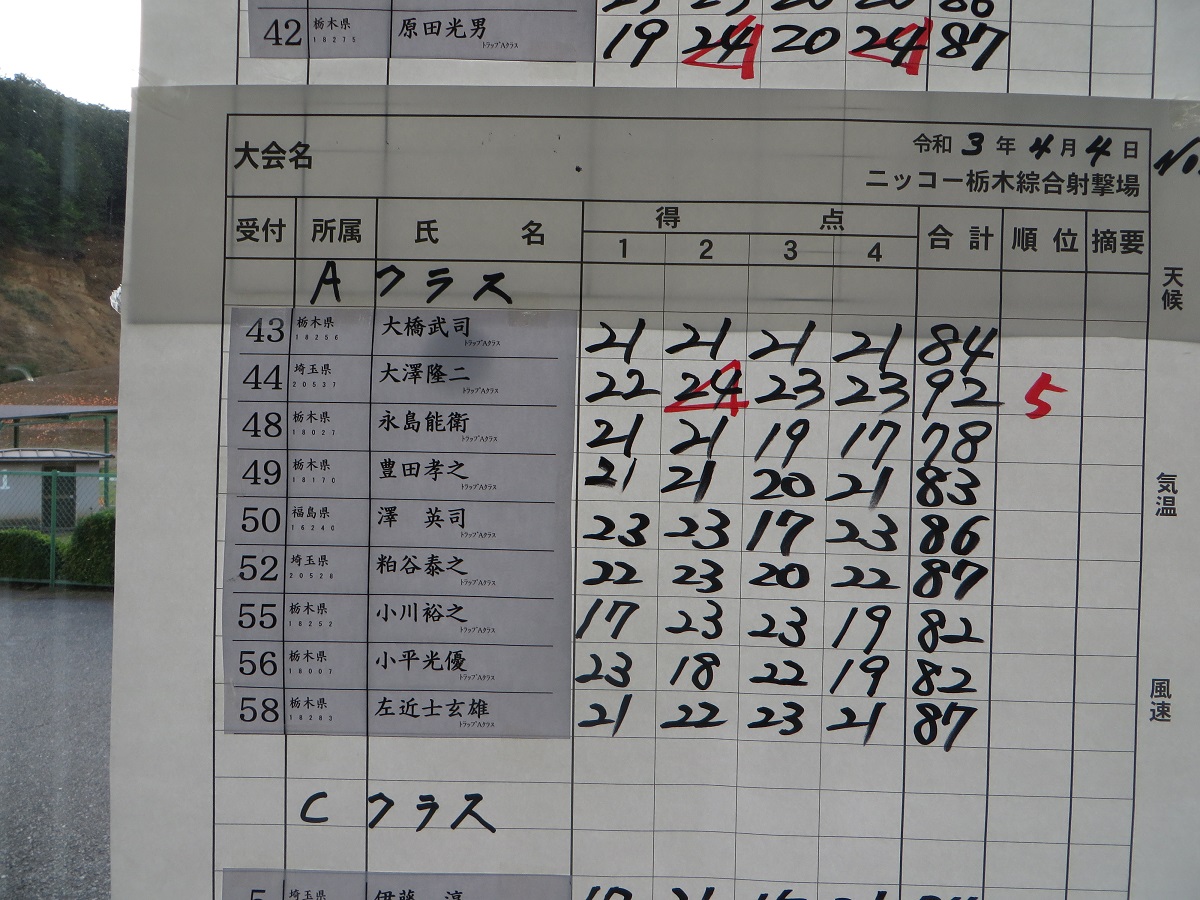 86
42 栃木県 18275 原田光男 トラップAクラス 19 24 20 24 87
大会名
令和 3 年 4 月 4 日
ニッコー栃木綜合射撃場
受付 所属 氏 名 得 点 合計 順位 摘要
1 2 3 4
A クラス
43 栃木県 18256 大橋武司 トラップAクラス 21 21 21 21 84
44 埼玉県 20537 大澤隆二 トラップAクラス 22 24 23 23 92 5
48 栃木県 18027 永島能衛 トラップAクラス 21 21 19 17 78
49 栃木県 18170 豊田孝之 トラップAクラス 21 21 20 21 83
50 福島県 16240 澤 英司 トラップAクラス 23 23 17 23 86
52 埼玉県 20528 粕谷泰之 トラップAクラス 22 23 20 22 87
55 栃木県 18252 小川裕之 トラップAクラス 17 23 23 19 82
56 栃木県 18007 小平光優 トラップAクラス 23 18 22 19 82
58 栃木県 18283 左近士玄雄 トラップAクラス 21 22 23 21 87
C クラス
5 埼玉県 伊藤 淳
天候
気温
風速